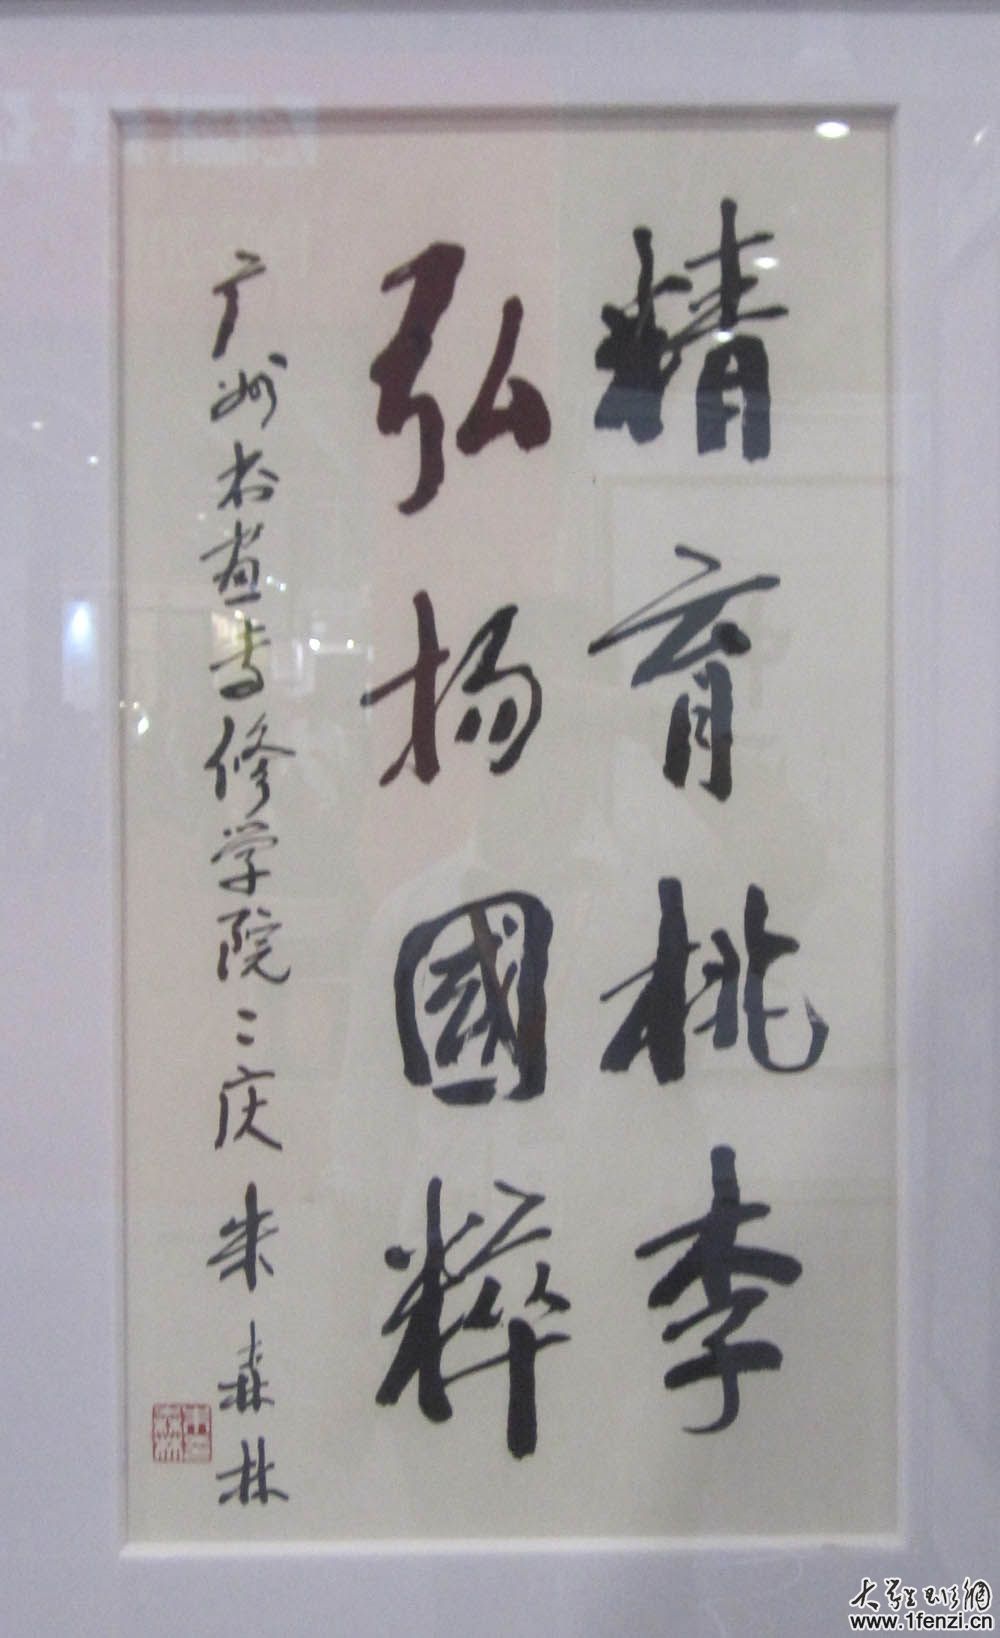 精育桃李
弘扬國粹
广州书画专修学院院庆 朱森林
大学生书法網
www.1fenzi.cn